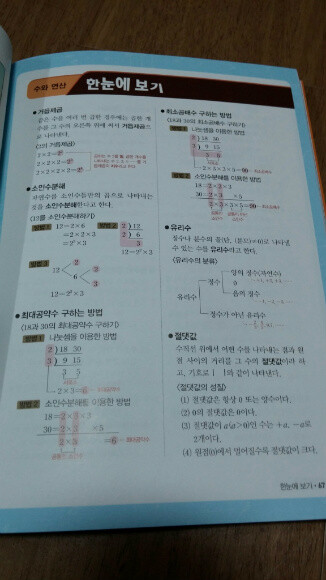 수와 연산
한눈에 보기
●거듭제곱
같은 수를 여러 번 곱한 경우에는 곱한 개
수를 그 수의 오른쪽 위에 써서 거듭제곱으
로 나타낸다.
(2의 거듭제곱)
2×2=2²
2×2×2=2³
2×2×2×2=2⁴
●소인수분해
자연수를 소인수들만의 곱으로 나타내는
것을 소인수분해한다고 한다.
(12를 소인수분해하기)
방법 1 12=2×6
=2×2×3
=2²×3
방법 2
2) 12
2) 6
3
12=2²×3
방법 3
12
2
6
2
3
12=2²×3
●최대공약수 구하는 방법
(18과 30의 최대공약수 구하기)
방법 1 나눗셈을 이용한 방법
2) 18 30
3) 9 15
3 5
2×3=6
방법 2 소인수분해를 이용한 방법
18=2×3×3
30=2×3 ×5
2×3 =6
●최소공배수 구하는 방법
(18과 30의 최소공배수 구하기)
방법 1 나눗셈을 이용한 방법
2) 18 30
3) 9 15
3 5
2×3×3×5=90
방법 2 소인수분해를 이용한 방법
18=2×3×3
30=2×3 ×5
2×3×3×5=90
●유리수
정수나 분수의 꼴(단, (분모)≠0)로 나타낼
수 있는 수를 유리수라고 한다.
(유리수의 분류)
유리수
정수
양의 정수(자연수)
0
음의 정수
정수가 아닌 유리수
●절댓값
수직선 위에서 어떤 수를 나타내는 점과 원
점 사이의 거리를 그 수의 절댓값이라 하
고, 기호로 | |와 같이 나타낸다.
(절댓값의 성질)
(1) 절댓값은 항상 0 또는 양수이다.
(2) 0의 절댓값은 0이다.
(3) 절댓값이 a(a>0)인 수는 +a, -a로
2개이다.
(4) 원점(0)에서 멀어질수록 절댓값이 크다.
한눈에 보기 • 67